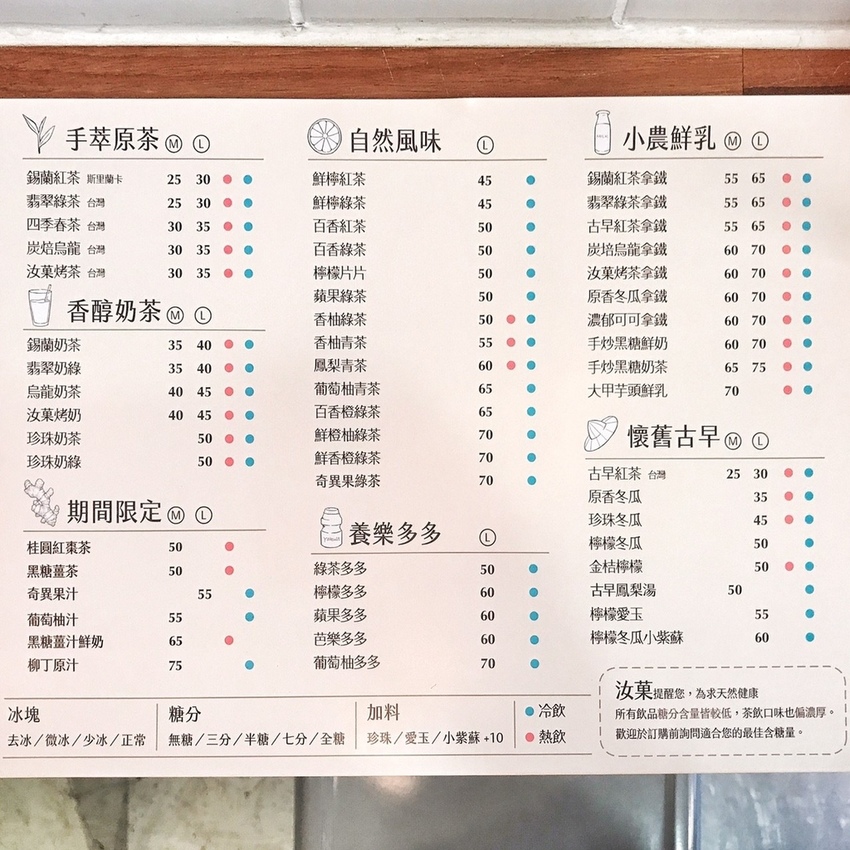 手萃原茶 M L
錫蘭紅茶 斯里蘭卡 25 30
翡翠綠茶 台灣 25 30
四季春茶 台灣 30 35
炭焙烏龍 台灣 30 35
汝菓烤茶 台灣 30 35
香醇奶茶 M L
錫蘭奶茶 35 40
翡翠奶綠 35 40
烏龍奶茶 40 45
汝菓烤奶 40 45
珍珠奶茶 50
珍珠奶綠 50
期間限定 M L
桂圓紅棗茶 50
黑糖薑茶 50
奇異果汁 55
葡萄柚汁 55
黑糖薑汁鮮奶 65
柳丁原汁 75
自然風味 L
鮮檸紅茶 45
鮮檸綠茶 45
百香紅茶 50
百香綠茶 50
檸檬片片 50
蘋果綠茶 50
香柚綠茶 50
香柚青茶 55
鳳梨青茶 60
葡萄柚青茶 65
百香橙綠茶 65
鮮橙柚綠茶 70
鮮香橙綠茶 70
奇異果綠茶 70
養樂多多 L
綠茶多多 50
檸檬多多 60
蘋果多多 60
芭樂多多 60
葡萄柚多多 70
小農鮮乳 M L
錫蘭紅茶拿鐵 55 65
翡翠綠茶拿鐵 55 65
古早紅茶拿鐵 55 65
炭焙烏龍拿鐵 60 70
汝菓烤茶拿鐵 60 70
原香冬瓜拿鐵 60 70
濃郁可可拿鐵 60 70
手炒黑糖鮮奶 60 70
手炒黑糖奶茶 65 75
大甲芋頭鮮乳 70
懷舊古早 M L
古早紅茶 台灣 25 30
原香冬瓜 35
珍珠冬瓜 45
檸檬冬瓜 50
金桔檸檬 50
古早鳳梨湯 50
檸檬愛玉 55
檸檬冬瓜小紫蘇 60
冰塊
去冰／微冰／少冰／正常
糖分
無糖／三分／半糖／七分／全糖
加料
珍珠／愛玉／小紫蘇 +10
冷飲
熱飲
汝菓提醒您，為求天然健康
所有飲品糖分含量皆較低，茶飲口味也偏濃厚。
歡迎於訂購前詢問適合您的最佳含糖量。